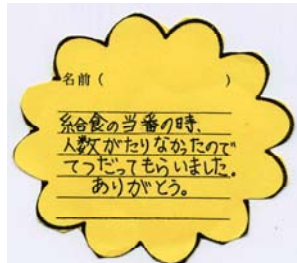 名前（　　　　　　）
給食の当番の時、
人数がたりなかったので
てつだってもらいました。
ありがとう。